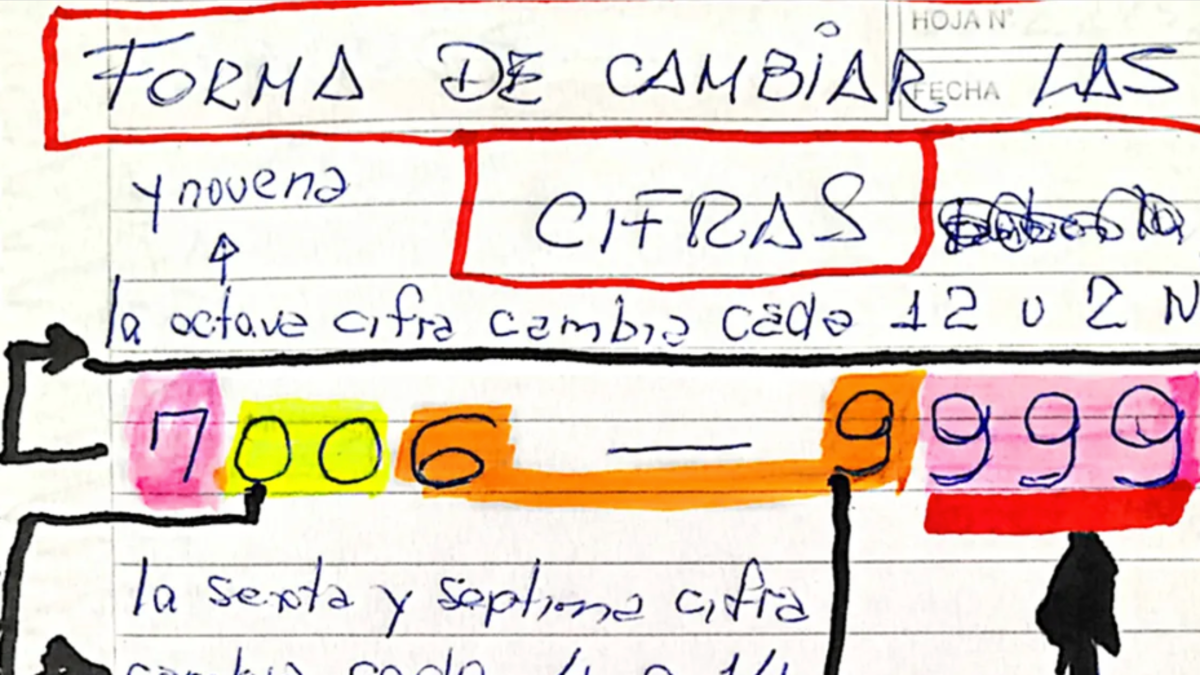 HOJA Nº
FORMA DE CAMBIAR LAS
FECHA
CIFRAS
y novena
la octava cifra cambia cada 12 o 2 N
7006 — 9999
la sexta y septima cifra
cambia cada